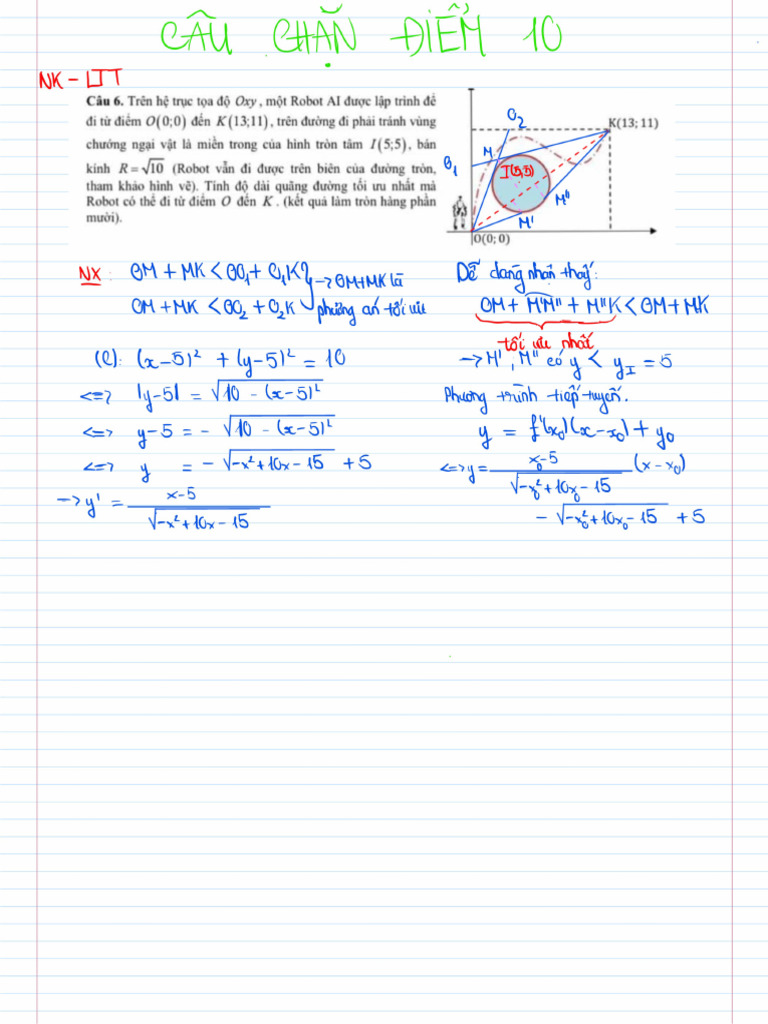 CÂU CHẶN ĐIỂM 10
NK - LTT
Câu 6. Trên hệ trục tọa độ Oxy, một Robot AI được lập trình để
đi từ điểm O(0;0) đến K(13;11), trên đường đi phải tránh vùng
chướng ngại vật là miền trong của hình tròn tâm I(5;5), bán
kính R = √10 (Robot vẫn đi được trên biên của đường tròn,
tham khảo hình vẽ). Tính độ dài quãng đường tối ưu nhất mà
Robot có thể đi từ điểm O đến K. (kết quả làm tròn hàng phần
mười).
O₂
K(13; 11)
M
O₁
I(5,5)
M''
M'
O(0; 0)
NX: OM + MK < OO₁ + O₁K
OM + MK < OO₂ + O₂K
→ OM+MK là
phương án tối ưu
(C): (x-5)² + (y-5)² = 10
<=> |y-5| = √(10 - (x-5)²)
<=> y-5 = - √(10 - (x-5)²)
<=> y = - √(-x²+10x-15) + 5
→ y' = (x-5)/√(-x²+10x-15)
Dễ dàng nhận thấy:
OM + M'M'' + M''K < OM + MK
tối ưu nhất
→ M', M'' có y < y_I = 5
Phương trình tiếp tuyến.
y = f'(x₀)(x-x₀) + y₀
<=> y = (x₀-5)/√(-x₀²+10x₀-15) (x-x₀)
- √(-x₀²+10x₀-15) + 5